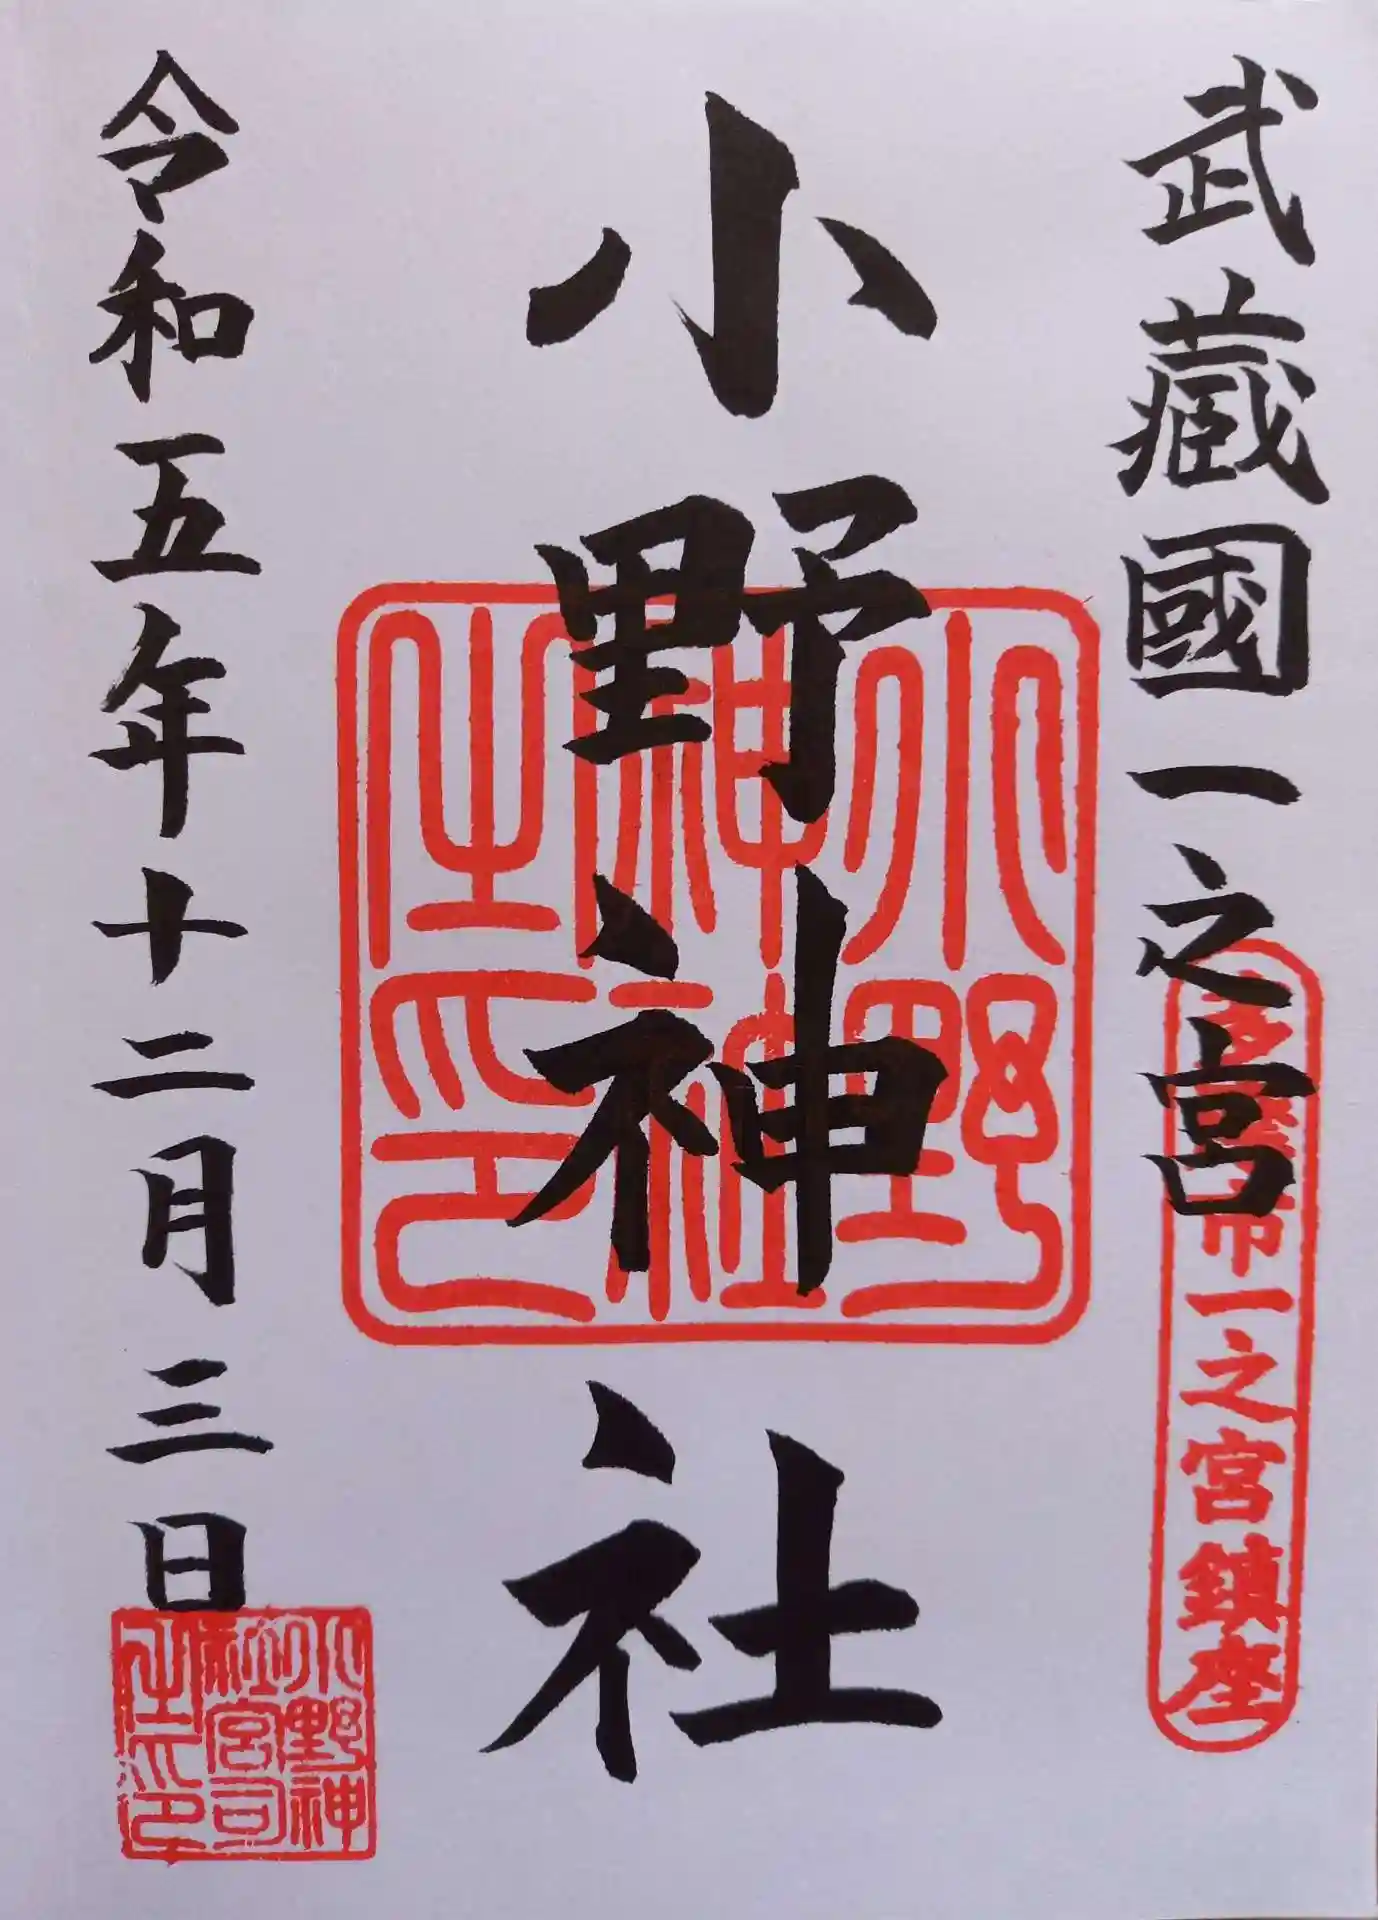 武蔵國一之宮
市一之宮鎮座
小野神社
小野
神社
之印
令和五年十二月三日
小野神
社宮司
之印